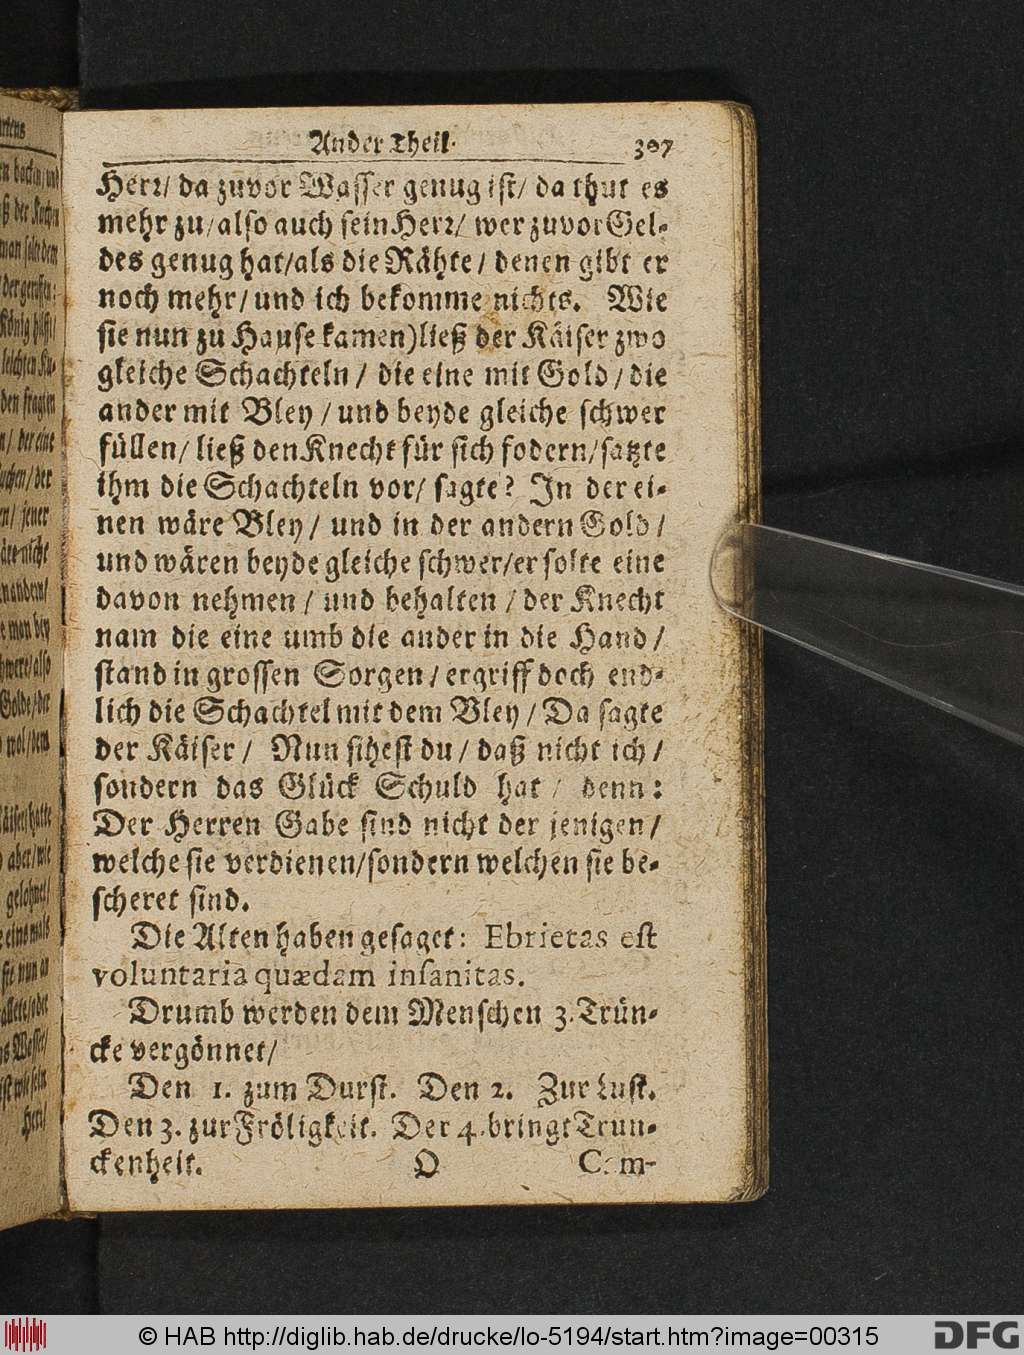 Ander Theil. 307
Herr/ da zuvor Wasser genug ist/ da thut es
mehr zu/also auch sein Herr/ wer zuvor Gel-
des genug hat/als die Rähte/ denen gibt er
noch mehr/und ich bekomme nichts. Wie
sie nun zu Hause kamen)ließ der Käiser zwo
gleiche Schachteln/ die eine mit Gold/die
ander mit Bley/und beyde gleiche schwer
füllen/ ließ den Knecht für sich fodern/satzte
ihm die Schachteln vor/ sagte? In der ei-
nen wäre Bley/ und in der andern Gold/
und wären beyde gleiche schwer/er solte eine
davon nehmen/ und behalten/der Knecht
nam die eine umb die ander in die Hand/
stand in grossen Sorgen/ergriff doch end-
lich die Schachtel mit dem Bley/Da sagte
der Käiser/ Nun sihest du/ daß nicht ich/
sondern das Glück Schuld hat/ denn:
Der Herren Gabe sind nicht der jenigen/
welche sie verdienen/sondern welchen sie be-
scheret sind.
Die Alten haben gesaget: Ebrietas est
voluntaria quædam insanitas.
Drumb werden dem Menschen 3. Trün-
cke vergönnet/
Den 1. zum Durst. Den 2. Zur Lust.
Den 3. zur Fröligkeit. Der 4. bringt Trun-
ckenheit. O Cam-
© HAB http://diglib.hab.de/drucke/lo-5194/start.htm?image=00315
DFG